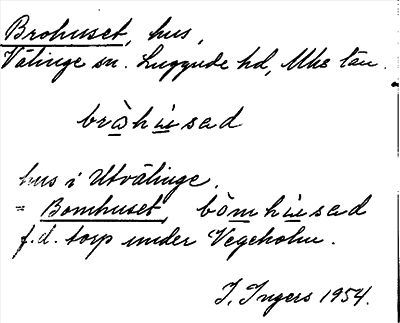 Brohuset, hus,
Välinge sn. Luggude hd, Mhs län.
bròhusad
hus i Utvälinge.
= Bomhuset, bòmhusad
f.d. torp under Vegeholm.
I. Ingers 1954.